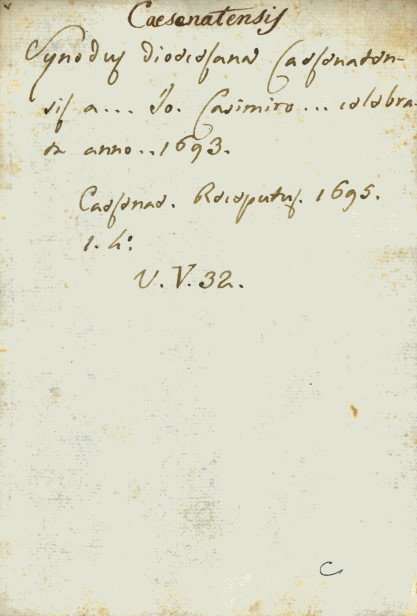 Caesenatensis
Synodus Dioecesana Caesenaten-
sis a... Jo. Casimiro... celebra-
ta anno.. 1693.
Caesenae. Receputus. 1695.
1. 4:
V. V. 32.
C